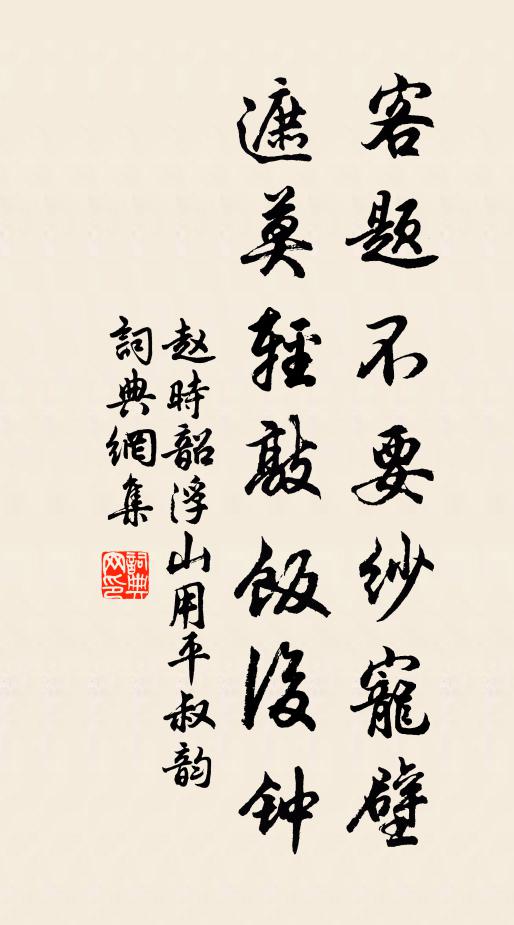 客题不要纱寵壁
遮莫輕敲飯後钟
赵時韶浮山用平叔韵
詞典網集
詞典网印